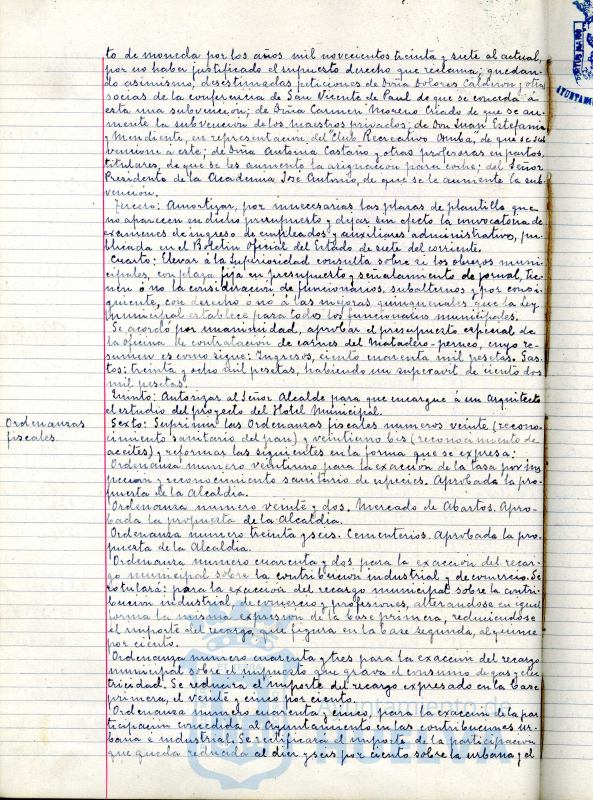 to de moneda por los años mil novecientos treinta y siete al actual,
por no haber justificado el supuesto derecho que reclama; quedan-
do asimismo, desestimadas peticiones de Doña Dolores Calderón y otras
socias de la conferencia de San Vicente de Paul de que se conceda á
esta una subvención; de Doña Carmen Moreno Criado de que se au-
mente la subvención de los maestros privados; de Don Juan Estefanía
y Mendiente, en representación del "Club Recreativo Onuba, de que se sub
vencione a éste; de Doña Antonia Castaño y otras profesoras en partos,
titulares, de que se les aumente la asignación para coche; del Señor
Presidente de la Academia José Antonio, de que se le aumente la sub-
vención.
Tercero: Amortizar, por innecesarias las plazas de plantilla que
no aparecen en dicho presupuesto y dejar sin efecto la convocatoria de
exámenes de ingreso de empleados y auxiliares administrativo, pu-
blicada en el Boletin Oficial del Estado de siete del corriente.
Cuarto: Elevar á la Superioridad consulta sobre si los obreros muni-
cipales, con plaza fija en presupuesto y señalamiento de jornal, tie-
nen ó no la consideración de funcionarios, subalternos y por consi-
guiente, con derecho ó nó á las mejoras quinquenales que la Ley
municipal establece para todos los funcionarios municipales.
Se acordó por unanimidad, aprobar el presupuesto especial de
la oficina de contratación de carnes del Matadero-perneo, cuyo re-
sumen es como sigue: Ingresos, ciento cuarenta mil pesetas. Gas-
tos; treinta y ocho mil pesetas, habiendo un superavit de ciento dos
mil pesetas.
Quinto: Autorizar al Señor Alcalde para que encargue á un Arquitecto
el estudio del proyecto del Hotel Municipal.
Ordenanzas
fiscales.
Sexto: Suprimir las Ordenanzas fiscales numeros veinte (recono-
cimiento sanitario del pan) y veintiuno bis (reconocimiento de
aceites) y reformar las siguientes en la forma que se expresa:
Ordenanza numero veintiuno para la exacción de la tasa por ins
pección y reconocimiento sanitario de especies. Aprobada la pro-
puesta de la Alcaldia.
Ordenanza numero veinte y dos. Mercado de Abastos. Apro-
bada la propuesta de la Alcaldia.
Ordenanza numero treinta y seis. Cementerios. Aprobada la pro-
puesta de la Alcaldia.
Ordenanza numero cuarenta y dos para la exacción del recar-
go municipal sobre la contribución industrial y de comercio. Se
rotulará: para la exacción del recargo municipal sobre la contri-
bución industrial, de comercio y profesiones, alterandose en igual
forma la misma expresión de la base primera, reduciendose
el importe del recargo, que figura en la base segunda, al quince
por ciento.
Ordenanza numero cuarenta y tres para la exacción del recargo
municipal sobre el impuesto que grava el consumo de gas y elec-
tricidad. Se reducirá el importe del recargo expresado en la base
primera, el veinte y cinco por ciento.
Ordenanza numero cuarenta y cinco, para la exacción de la par
ticipación concedida al Ayuntamiento en las contribuciones ur-
bana é industrial. Se rectificará el importe de la participación
que queda reducida al diez y seis por ciento sobre la urbana y el